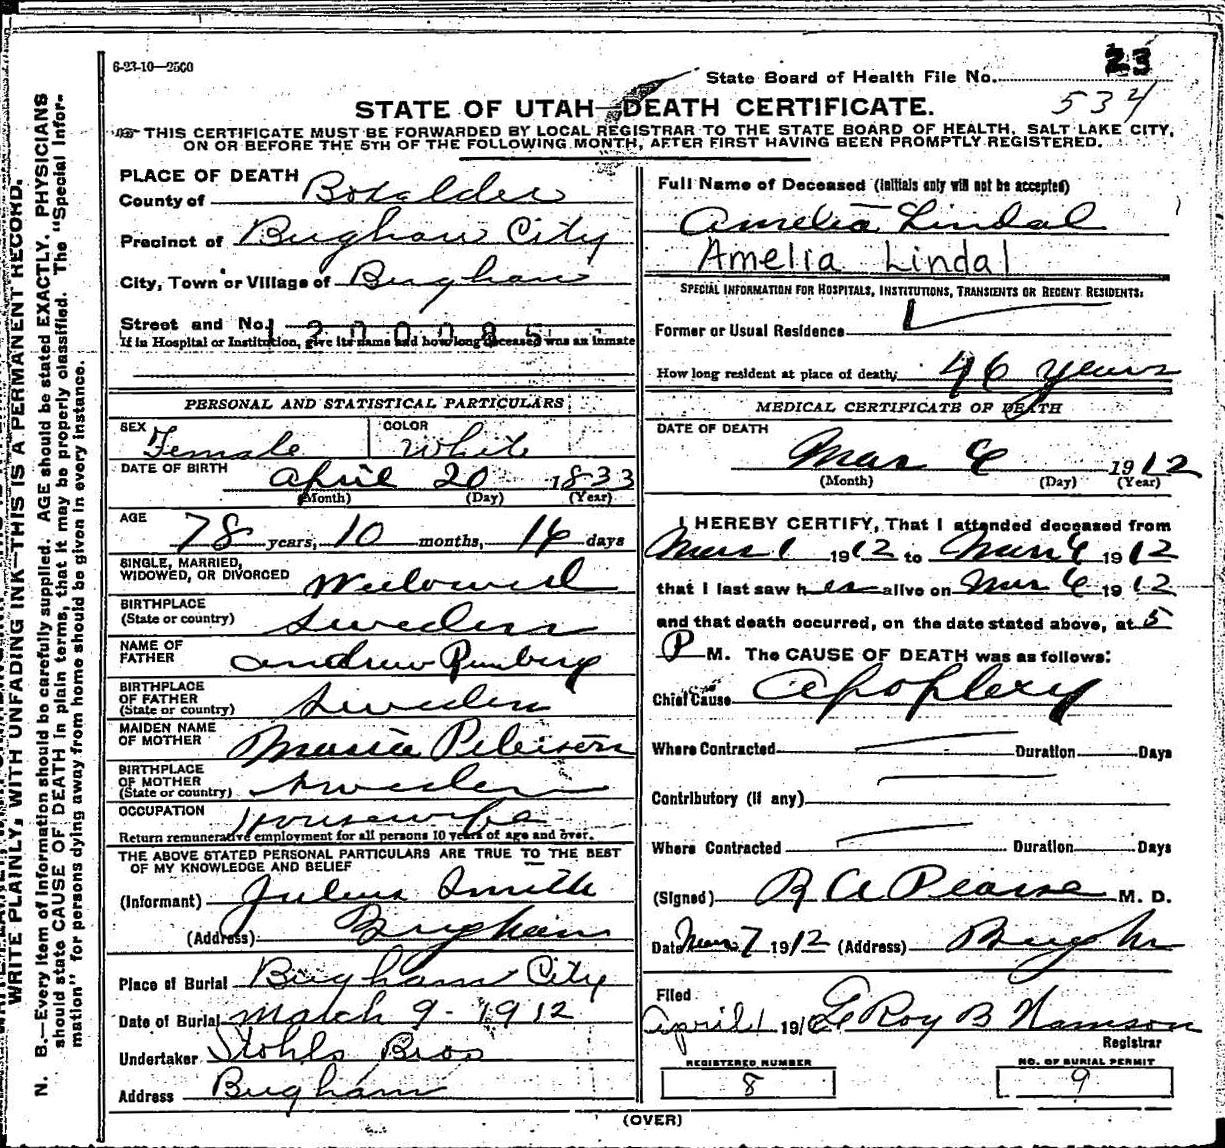 6-23-10—2500
State Board of Health File No. 23
534
STATE OF UTAH—DEATH CERTIFICATE.
THIS CERTIFICATE MUST BE FORWARDED BY LOCAL REGISTRAR TO THE STATE BOARD OF HEALTH, SALT LAKE CITY,
ON OR BEFORE THE 5TH OF THE FOLLOWING MONTH, AFTER FIRST HAVING BEEN PROMPTLY REGISTERED.
WRITE PLAINLY, WITH UNFADING INK—THIS IS A PERMANENT RECORD.
N. B.—Every item of information should be carefully supplied. AGE should be stated EXACTLY. PHYSICIANS
should state CAUSE OF DEATH in plain terms, that it may be properly classified. The "Special Infor-
mation" for persons dying away from home should be given in every instance.
PLACE OF DEATH
County of Boxelder
Precinct of Brigham City
City, Town or Village of Brigham
Street and No.
1200085
If in Hospital or Institution, give its name and how long deceased was an inmate
PERSONAL AND STATISTICAL PARTICULARS
SEX Female COLOR White
DATE OF BIRTH
April 20 1833
(Month) (Day) (Year)
AGE
78 years, 10 months, 14 days
SINGLE, MARRIED,
WIDOWED, OR DIVORCED Widowed
BIRTHPLACE
(State or country) Sweden
NAME OF
FATHER Andrew
BIRTHPLACE
OF FATHER
(State or country) Sweden
MAIDEN NAME
OF MOTHER Maria
BIRTHPLACE
OF MOTHER
(State or country) Sweden
OCCUPATION Housewife
Return remunerative employment for all persons 10 years of age and over.
THE ABOVE STATED PERSONAL PARTICULARS ARE TRUE TO THE BEST
OF MY KNOWLEDGE AND BELIEF
(Informant) Julius Smith
(Address) Brigham
Place of Burial Brigham City
Date of Burial March 9 - 1912
Undertaker Stohls Bros
Address Brigham
Full Name of Deceased (Initials only will not be accepted)
Amelia Lindal
Amelia Lindal
SPECIAL INFORMATION FOR HOSPITALS, INSTITUTIONS, TRANSIENTS OR RECENT RESIDENTS:
Former or Usual Residence
How long resident at place of death, 46 years
MEDICAL CERTIFICATE OF DEATH
DATE OF DEATH
Mar 6 1912
(Month) (Day) (Year)
I HEREBY CERTIFY, That I attended deceased from
Mar 1 1912 to Mar 6 1912
that I last saw her alive on Mar 6 1912
and that death occurred, on the date stated above, at 5
P M. The CAUSE OF DEATH was as follows:
Chief Cause Apoplexy
Where Contracted Duration Days
Contributory (if any)
Where Contracted Duration Days
(Signed) R A Pearse M. D.
Date Mar 7 1912 (Address) Brigham
Filed
April 1 191 Roy B
Registrar
REGISTERED NUMBER
8
NO. OF BURIAL PERMIT
9
(OVER)